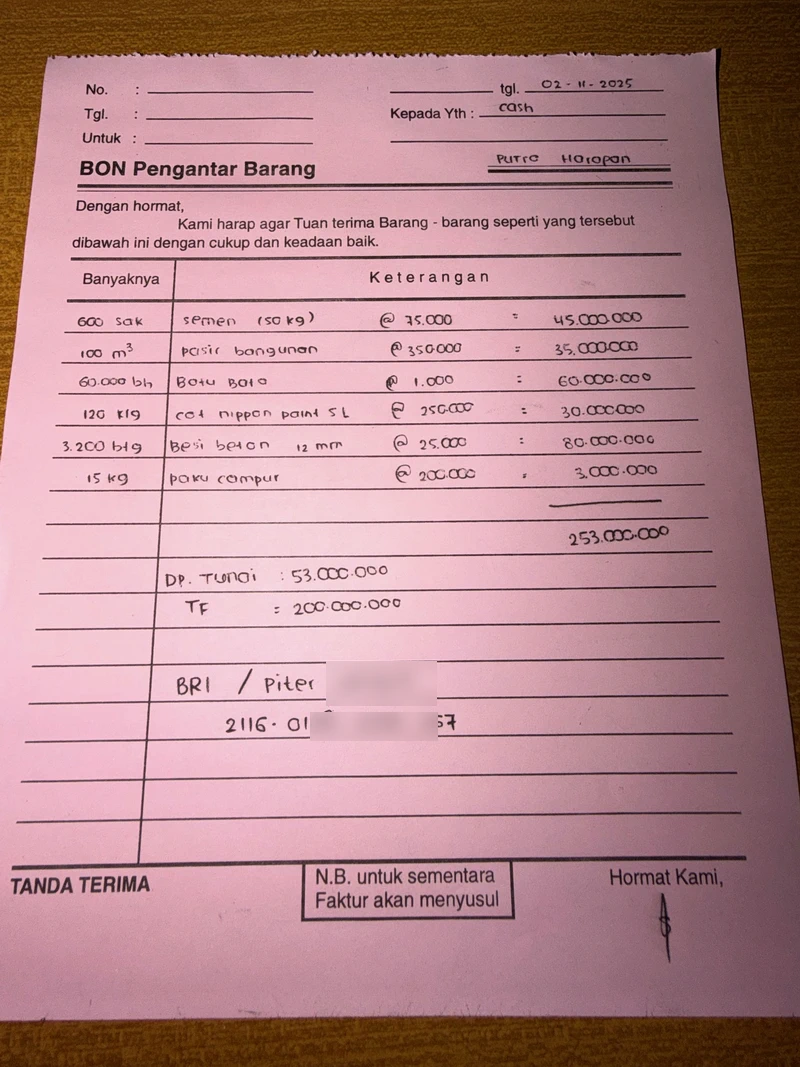 No. : tgl. 02-11-2025
Tgl. : Kepada Yth : cash
Untuk :
BON Pengantar Barang Putra Harapan
Dengan hormat,
Kami harap agar Tuan terima Barang - barang seperti yang tersebut
dibawah ini dengan cukup dan keadaan baik.
Banyaknya Keterangan
600 sak semen (50 kg) @ 75.000 = 45.000.000
100 m³ pasir bangunan @ 350.000 = 35.000.000
60.000 bh Batu Bata @ 1.000 = 60.000.000
120 klg cat nippon paint 5 L @ 250.000 = 30.000.000
3.200 btg Besi beton 12 mm @ 25.000 : 80.000.000
15 kg paku campur @ 200.000 = 3.000.000
253.000.000
DP. Tunai : 53.000.000
TF = 200.000.000
BRI / Piter
2116-01 57
TANDA TERIMA N.B. untuk sementara Hormat Kami,
Faktur akan menyusul